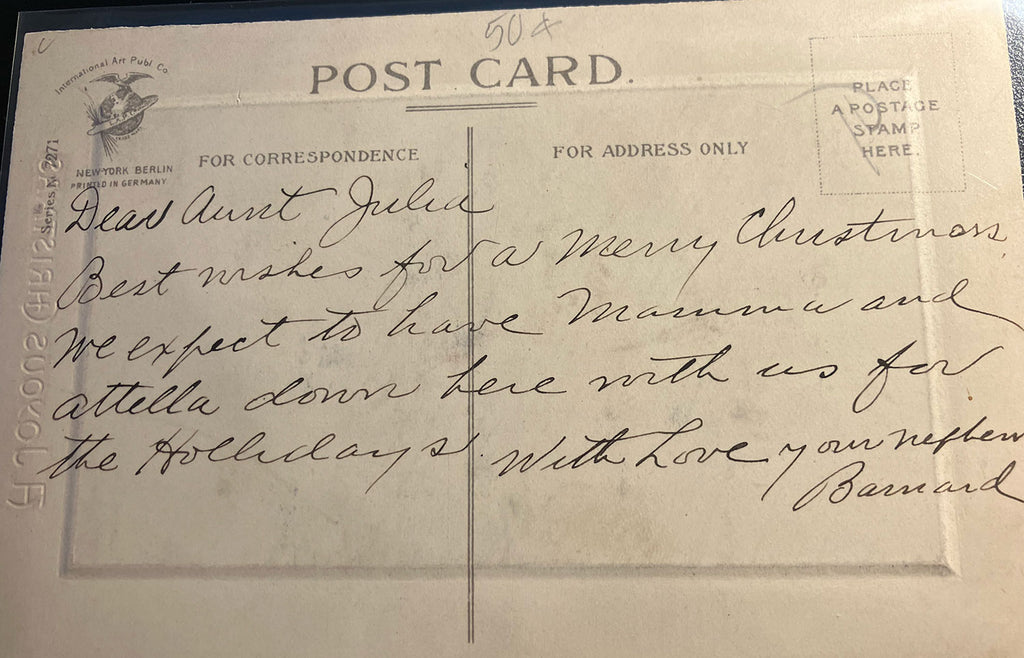 50¢
International Art Publ. Co.
POST CARD.
PLACE
A POSTAGE
STAMP
HERE.
NEW-YORK BERLIN
PRINTED IN GERMANY
Series No 2271
FOR CORRESPONDENCE
FOR ADDRESS ONLY
Dear Aunt Julia
Best wishes for a Merry Christmas
We expect to have Mamma and
attella down here with us for
the Hollidays. With Love your nephew
Barnard
A JOYOUS CHRISTMAS